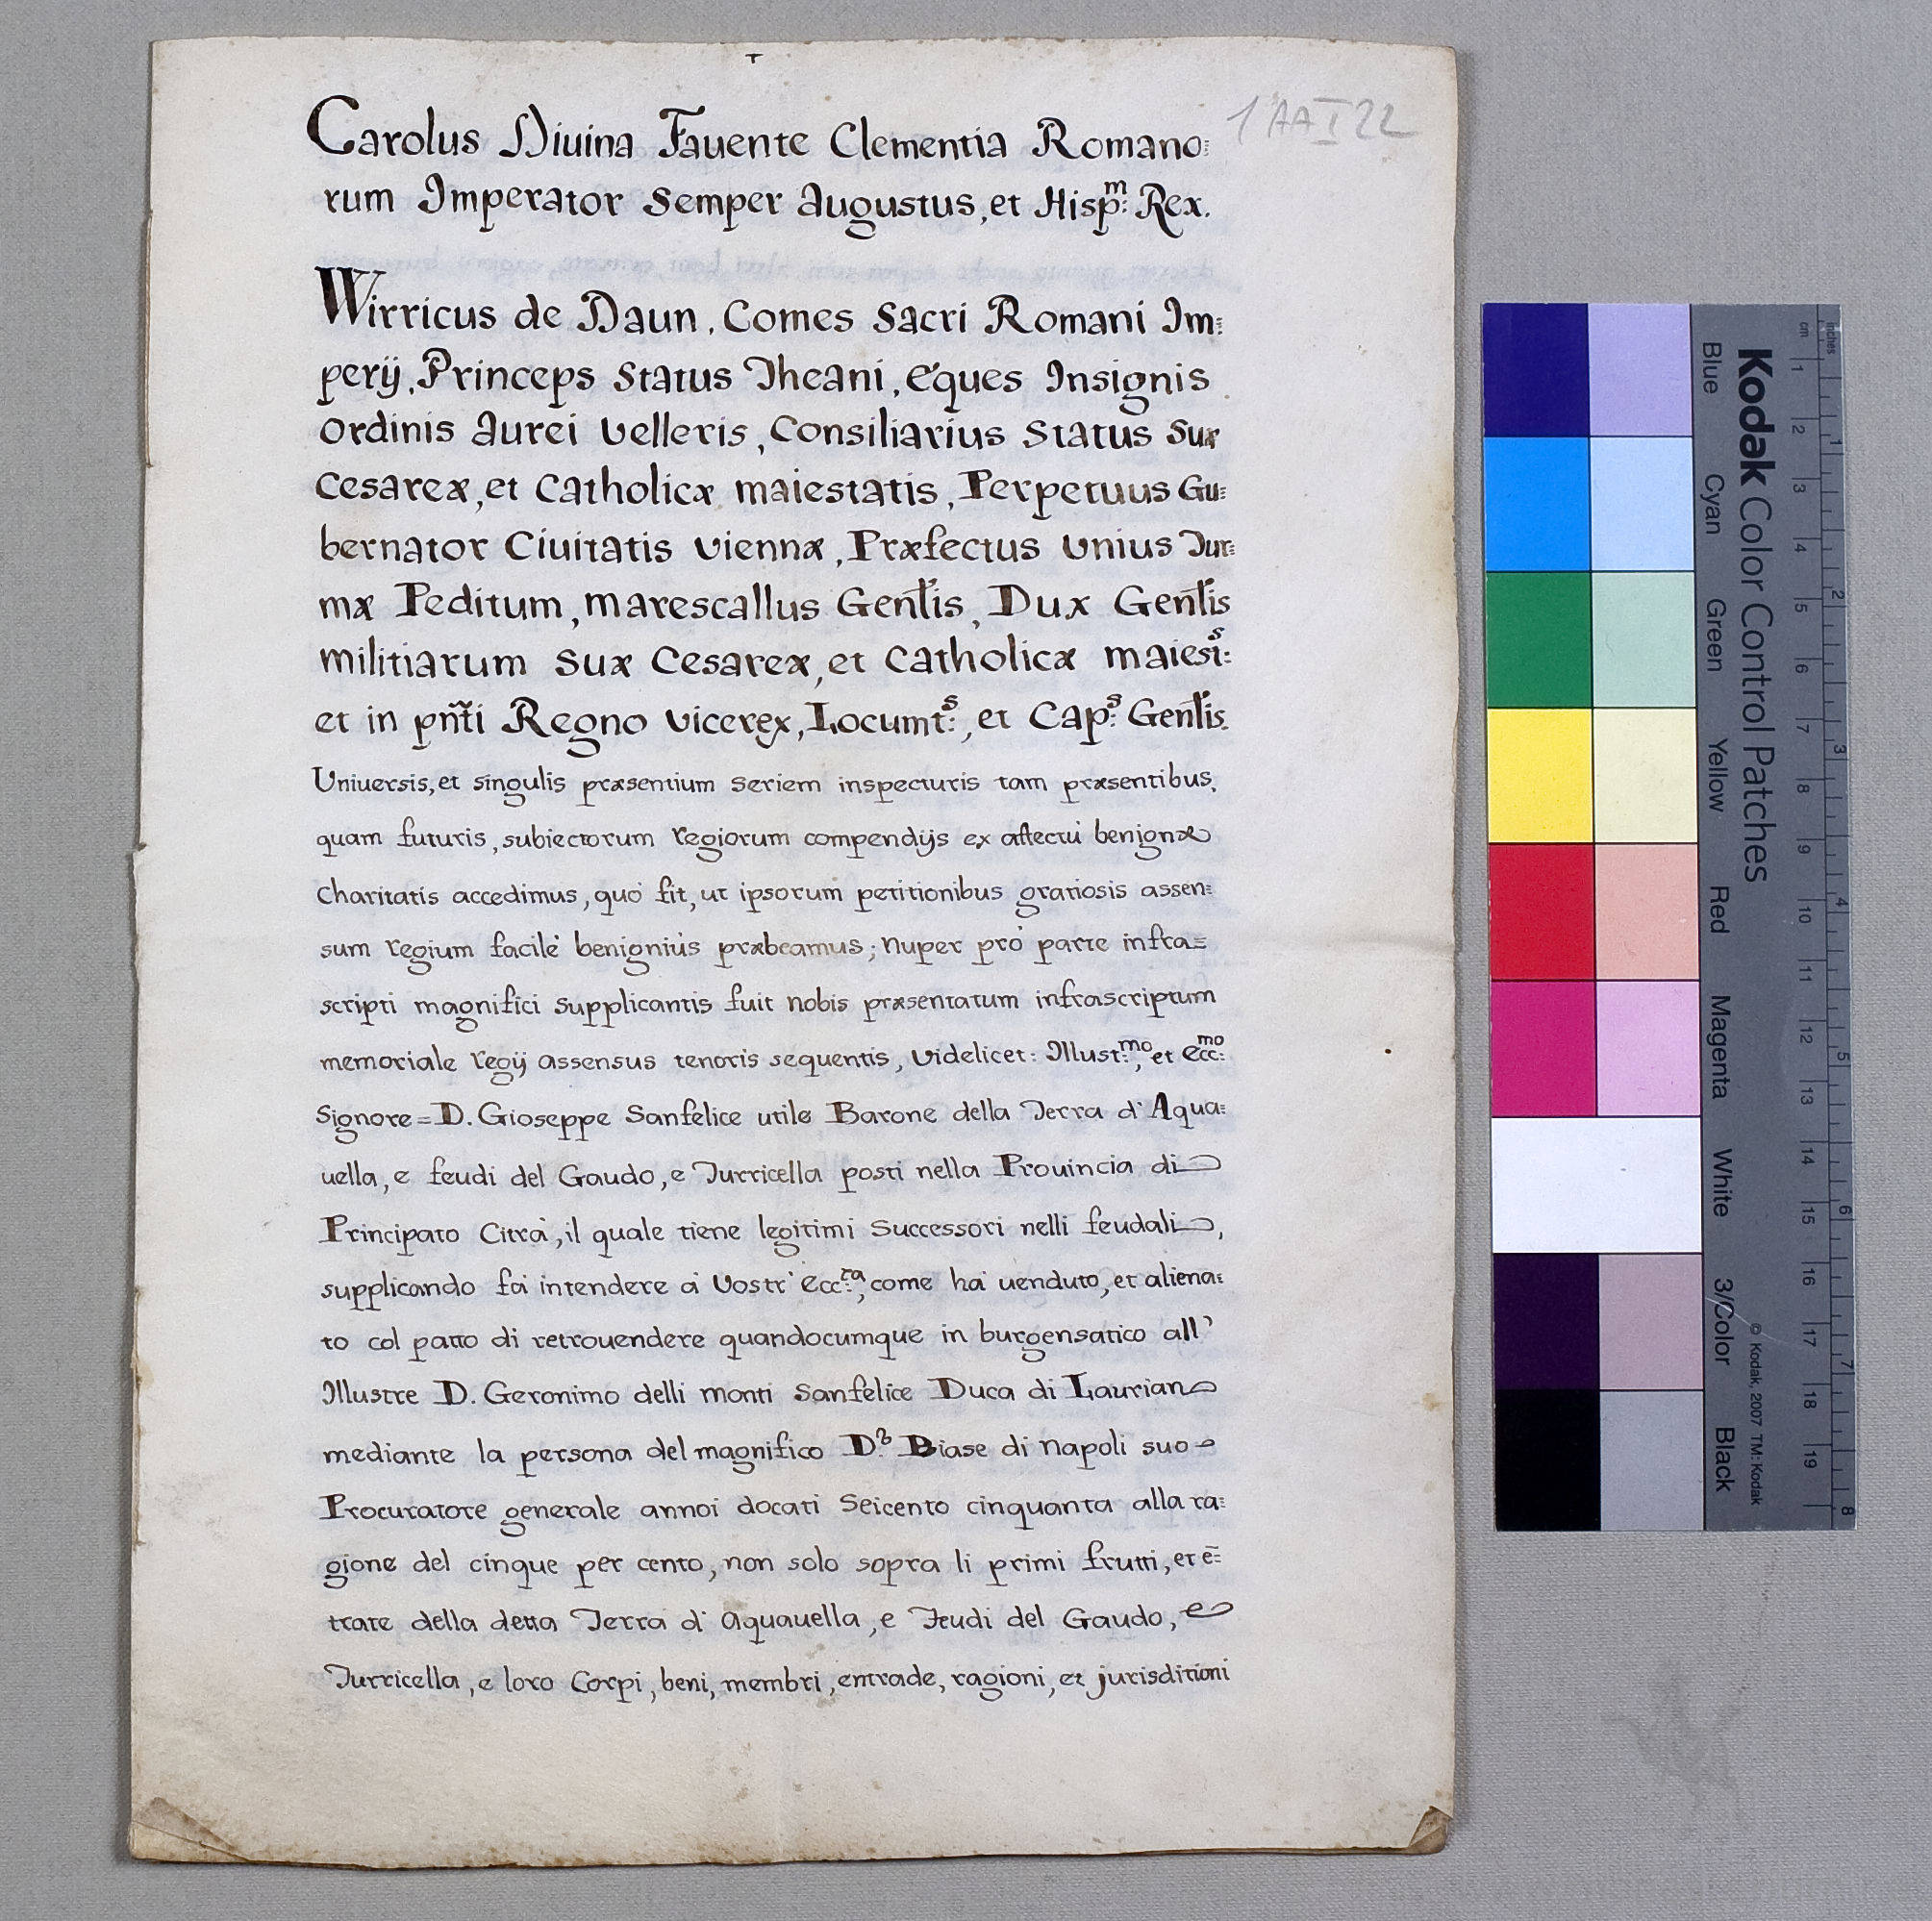 1 AA I 22
Carolus Diuina Fauente Clementia Romano:
rum Imperator Semper Augustus, et Hisp:m Rex.
Wirricus de Daun, Comes Sacri Romani Im:
perij, Princeps Status Theani, Eques Insignis
Ordinis Aurei Velleris, Consiliarius Status Suæ
Cesareæ, et Catholicæ maiestatis, Perpetuus Gu:
bernator Ciuitatis Viennæ, Præfectus Unius Tur:
mæ Peditum, marescallus Gen̄lis, Dux Gen̄lis
militiarum Suæ Cesareæ, et Catholicæ maiest:s
et in pn̄ti Regno Vicerex, Locumt:s, et Cap:s Gen̄lis.
Uniuersis, et singulis præsentium seriem inspecturis tam præsentibus,
quam futuris, subiectorum regiorum compendijs ex affectu benignæ
Charitatis accedimus, quo fit, ut ipsorum petitionibus gratiosis assen:
sum regium facilè benigniùs præbeamus; nuper prò parte infra=
scripti magnifici supplicantis fuit nobis præsentatum infrascriptum
memoriale regij assensus tenoris sequentis, videlicet: Illust:mo, et Ecc:mo
Signore = D. Gioseppe Sanfelice utile Barone della Terra d'Aqua:
uella, e feudi del Gaudo, e Turricella posti nella Prouincia di
Principato Citrà, il quale tiene legitimi successori nelli feudali,
supplicando fà intendere à Vostr'Ecc:za, come hà uenduto, et aliena:
to col patto di retrouendere quandocumque in burgensatico all'
Illustre D. Geronimo delli monti Sanfelice Duca di Laurian
mediante la persona del magnifico D.r Biase di Napoli suo
Procuratore generale annoi docati Seicento cinquanta alla ra:
gione del cinque per cento, non solo sopra li primi frutti, et ē=
trate della detta Terra d'Aquauella, e Feudi del Gaudo, e
Turricella, e loro Corpi, beni, membri, entrade, ragioni, et jurisditioni
Kodak Color Control Patches
Blue
Cyan
Green
Yellow
Red
Magenta
White
3/Color
Black
© Kodak, 2007 TM: Kodak
cm 1 2 3 4 5 6 7 8 9 10 11 12 13 14 15 16 17 18 19
inches 1 2 3 4 5 6 7 8